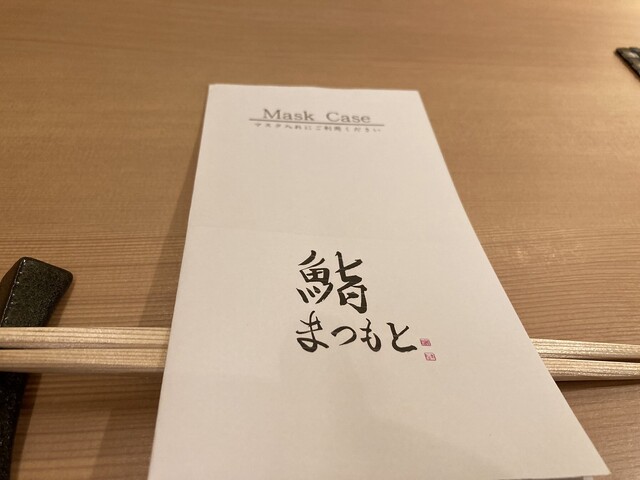 Mask Case
マスク入れにご利用ください
鮨
まつもと